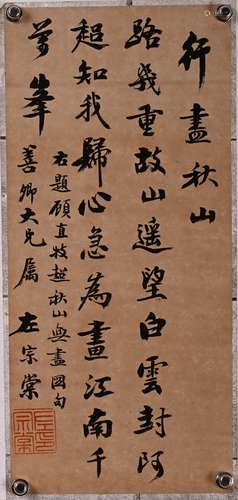 行盡秋山
路幾重故山遥望白雲封阿
超知我歸心急為畫江南千
萬峯
右題顧直牧超秋山無盡圖句
善卿大兄属
左宗棠